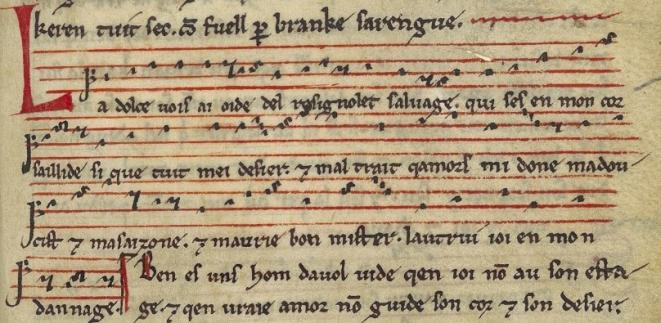 keren tuit sec. cō fuell ꝑ branke sarengue.
La dolce uois ai oide del rosignolet saluage. qui ses en mon cor
saillide si que tuit mei desier. ⁊ mal trait qamors mi done madou
cist ⁊ masaizone. ⁊ maurie bon mister. lautrui ioi en mon
dannage. Ben es uns hom dauol uide qen ioi nō au son esta
ge. ⁊ qen uraie amor nō guide son cor ⁊ son desier.